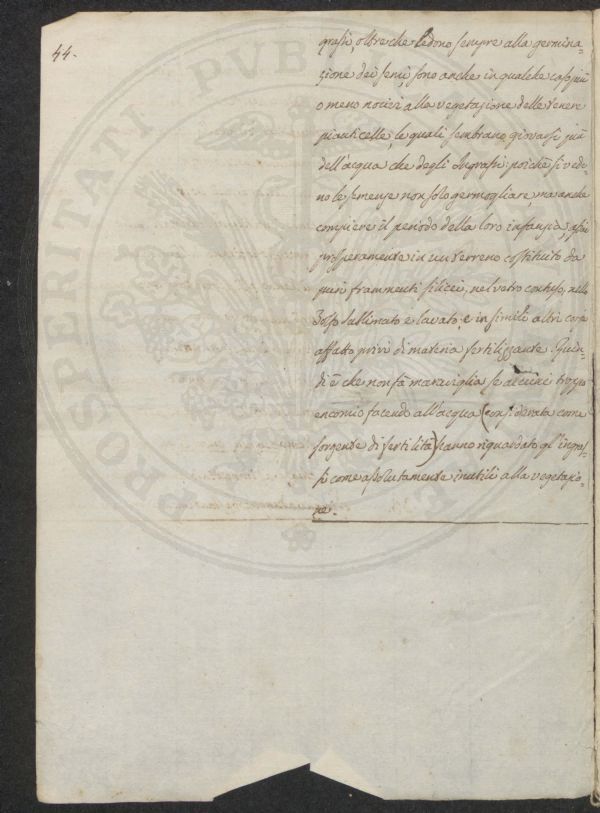 44.
grassi, oltre che ledono sempre alla germina-
zione dei semi, sono anche in qualche caso più
o meno nocivi alla vegetazione delle tenere
pianticelle, le quali sembrano giovarsi più
dell'acqua che degli Ingrassi: poichè si vedo-
no le semenze non solo germogliare, ma anche
compiere il periodo della loro infanzia, assai
prosperamente in un terreno costituito da
puri frammenti silicei, nel vetro contuso, allo
Zolfo sullimato e lavato, e in simili altri corpi
affatto privi di materia fertilizzante. Quin-
di è che non fa maraviglia se alcuni troppo
encomio facendo all'acqua (considerata come
sorgente di fertilità) hanno riguardato gl'ingras-
si come assolutamente inutili alla vegetazio-
ne.
PROSPERITATI PVB